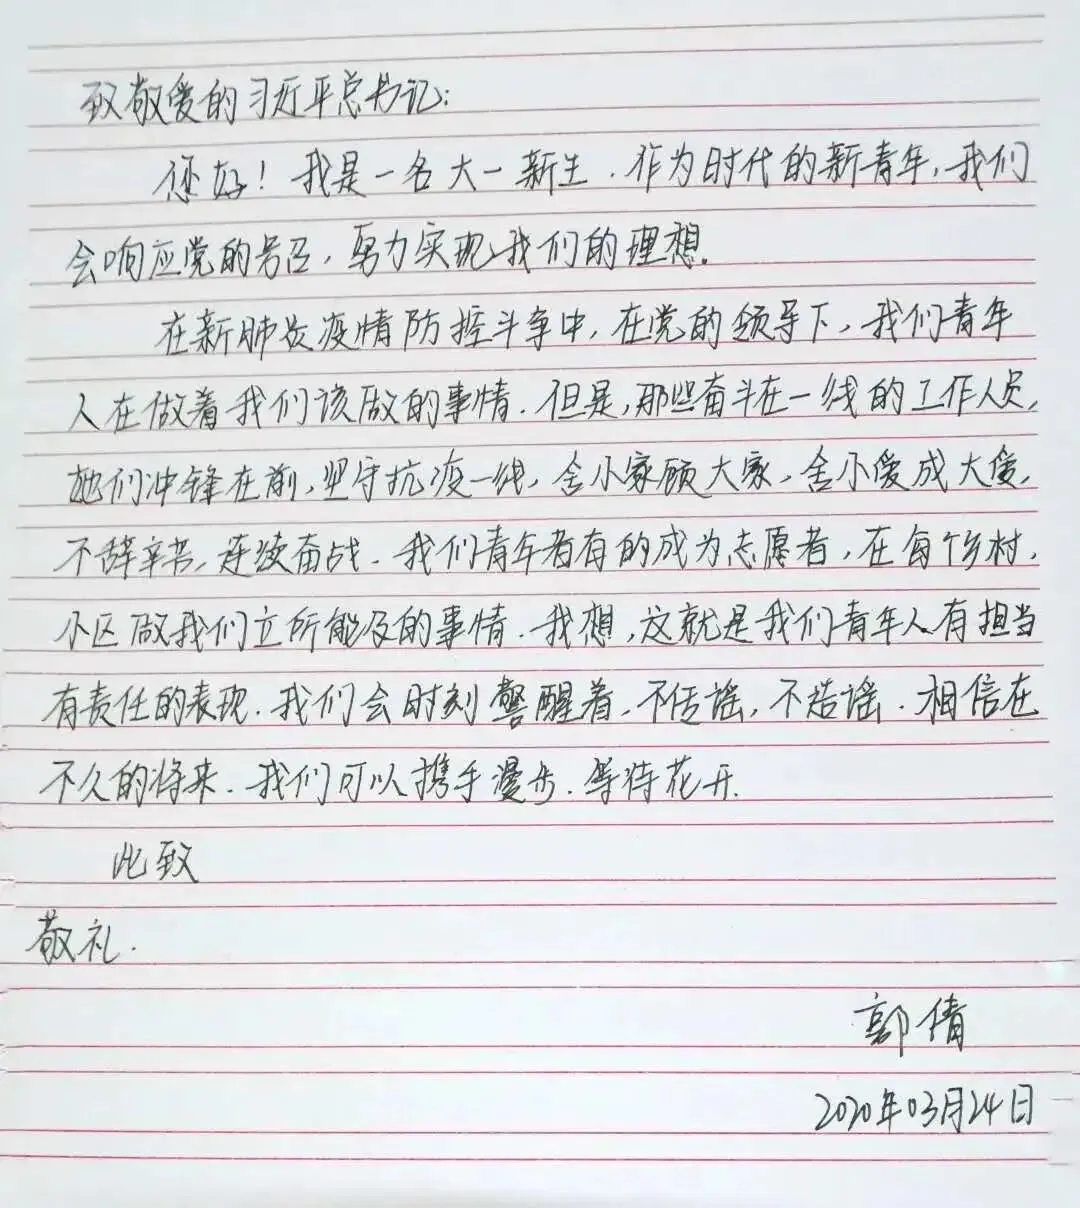 致敬爱的习近平总书记:
您好!我是一名大一新生.作为时代的新青年,我们
会响应党的号召,努力实现我们的理想.
在新肺炎疫情防控斗争中,在党的领导下,我们青年
人在做着我们该做的事情.但是,那些奋斗在一线的工作人员,
她们冲锋在前,坚守抗疫一线,舍小家顾大家,舍小爱成大爱,
不辞辛苦,连续奋战.我们青年者有的成为志愿者,在每个乡村,
小区做我们立所能及的事情.我想,这就是我们青年人有担当
有责任的表现.我们会时刻警醒着,不传谣,不造谣.相信在
不久的将来.我们可以携手漫步.等待花开.
此致
敬礼.
郭倩
2020年03月24日